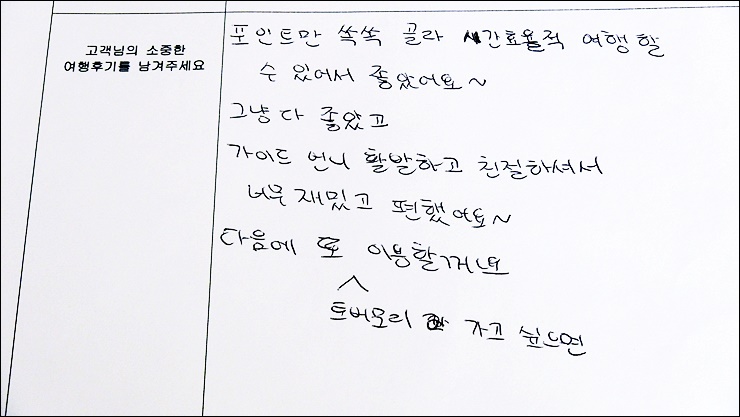 고객님의 소중한
여행후기를 남겨주세요
포인트만 쏙쏙 골라 시간효율적 여행할
수 있어서 좋았어요~
그냥 다 좋았고
가이드 언니 활발하고 친절하셔서
너무 재밌고 편했어요~
다음에 또 이용할게요
토버모리 가고 싶으면